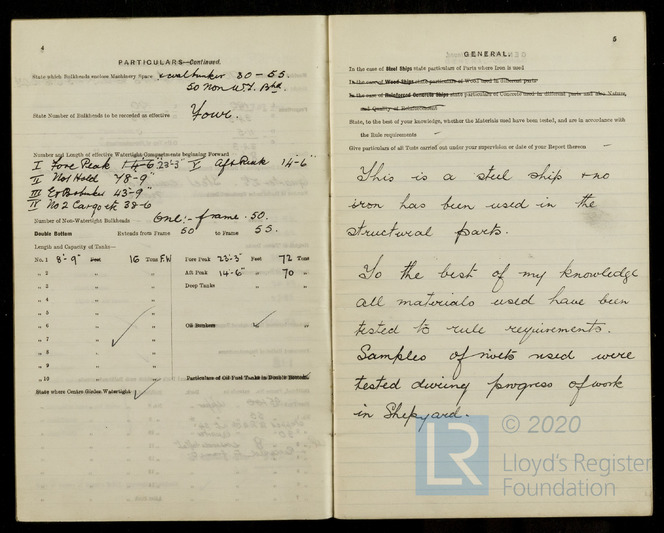 4
PARTICULARS—Continued.
State which Bulkheads enclose Machinery Space & coal bunker 30 - 55.
50 Non W.T. Bhd.
State Number of Bulkheads to be recorded as effective Four.
Number and Length of effective Watertight Compartments beginning Forward
I Fore Peak 14-6" 23'-3" V Aft Peak 14-6"
II No 1 Hold 48-9"
III 43-9"
IV No 2 Cargo 38-6
Number of Non-Watertight Bulkheads One:- frame. 50.
Double Bottom Extends from Frame 50 to Frame 55.
Length and Capacity of Tanks—
No. 1 8'-9" feet 16 Tons F.W Fore Peak 23'-3" Feet 72 Tons
„ 2 „ „ Aft Peak 14-6" „ 70 „
„ 3 „ „ Deep Tanks
„ 4 „ „
„ 5 „ „
„ 6 „ „ Oil Bunkers „
„ 7 „ „
„ 8 „ „
„ 9 „ „
„ 10 „ „ Particulars of Oil Fuel Tanks in Double Bottom
State where Centre Girder Watertight
5
GENERAL.
In the case of Steel Ships state particulars of Parts where Iron is used
In the case of Wood Ships state particulars of Wood used in different parts
In the case of Reinforced Concrete Ships state particulars of Concrete used in different parts and also Nature,
and Quality of Reinforcement
State, to the best of your knowledge, whether the Materials used have been tested, and are in accordance with
the Rule requirements
Give particulars of all Tests carried out under your supervision or date of your Report thereon
This is a steel ship & no
iron has been used in the
structural parts.
To the best of my knowledge
all materials used have been
tested to rule requirements.
Samples of rivets used were
tested during progress of work
in Shipyard.
LR © 2020
Lloyd's Register
Foundation